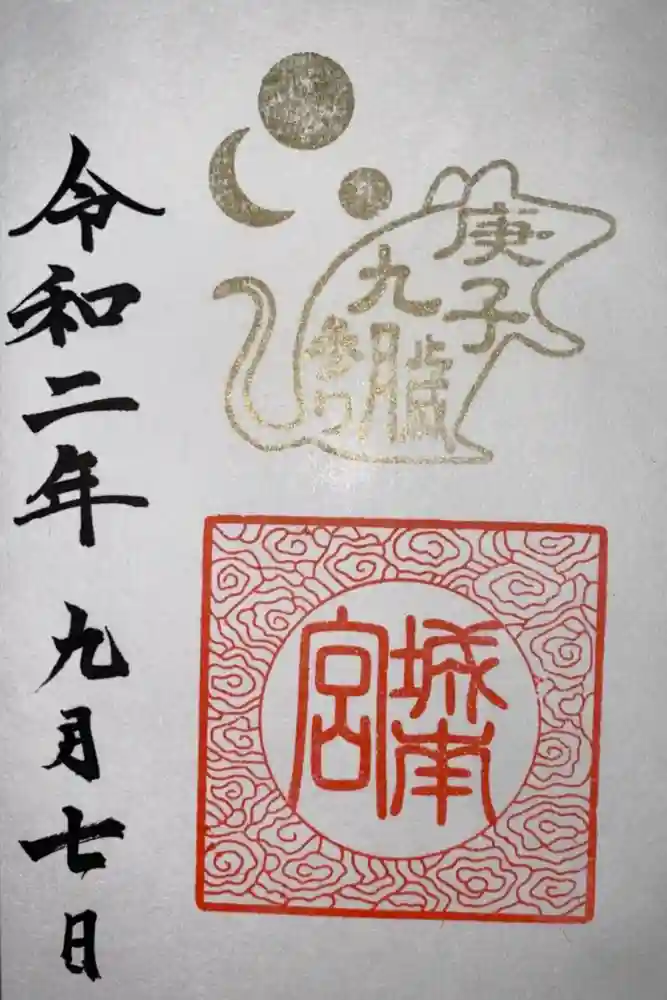 庚子歳
九月
城南宮
令和二年 九月七日